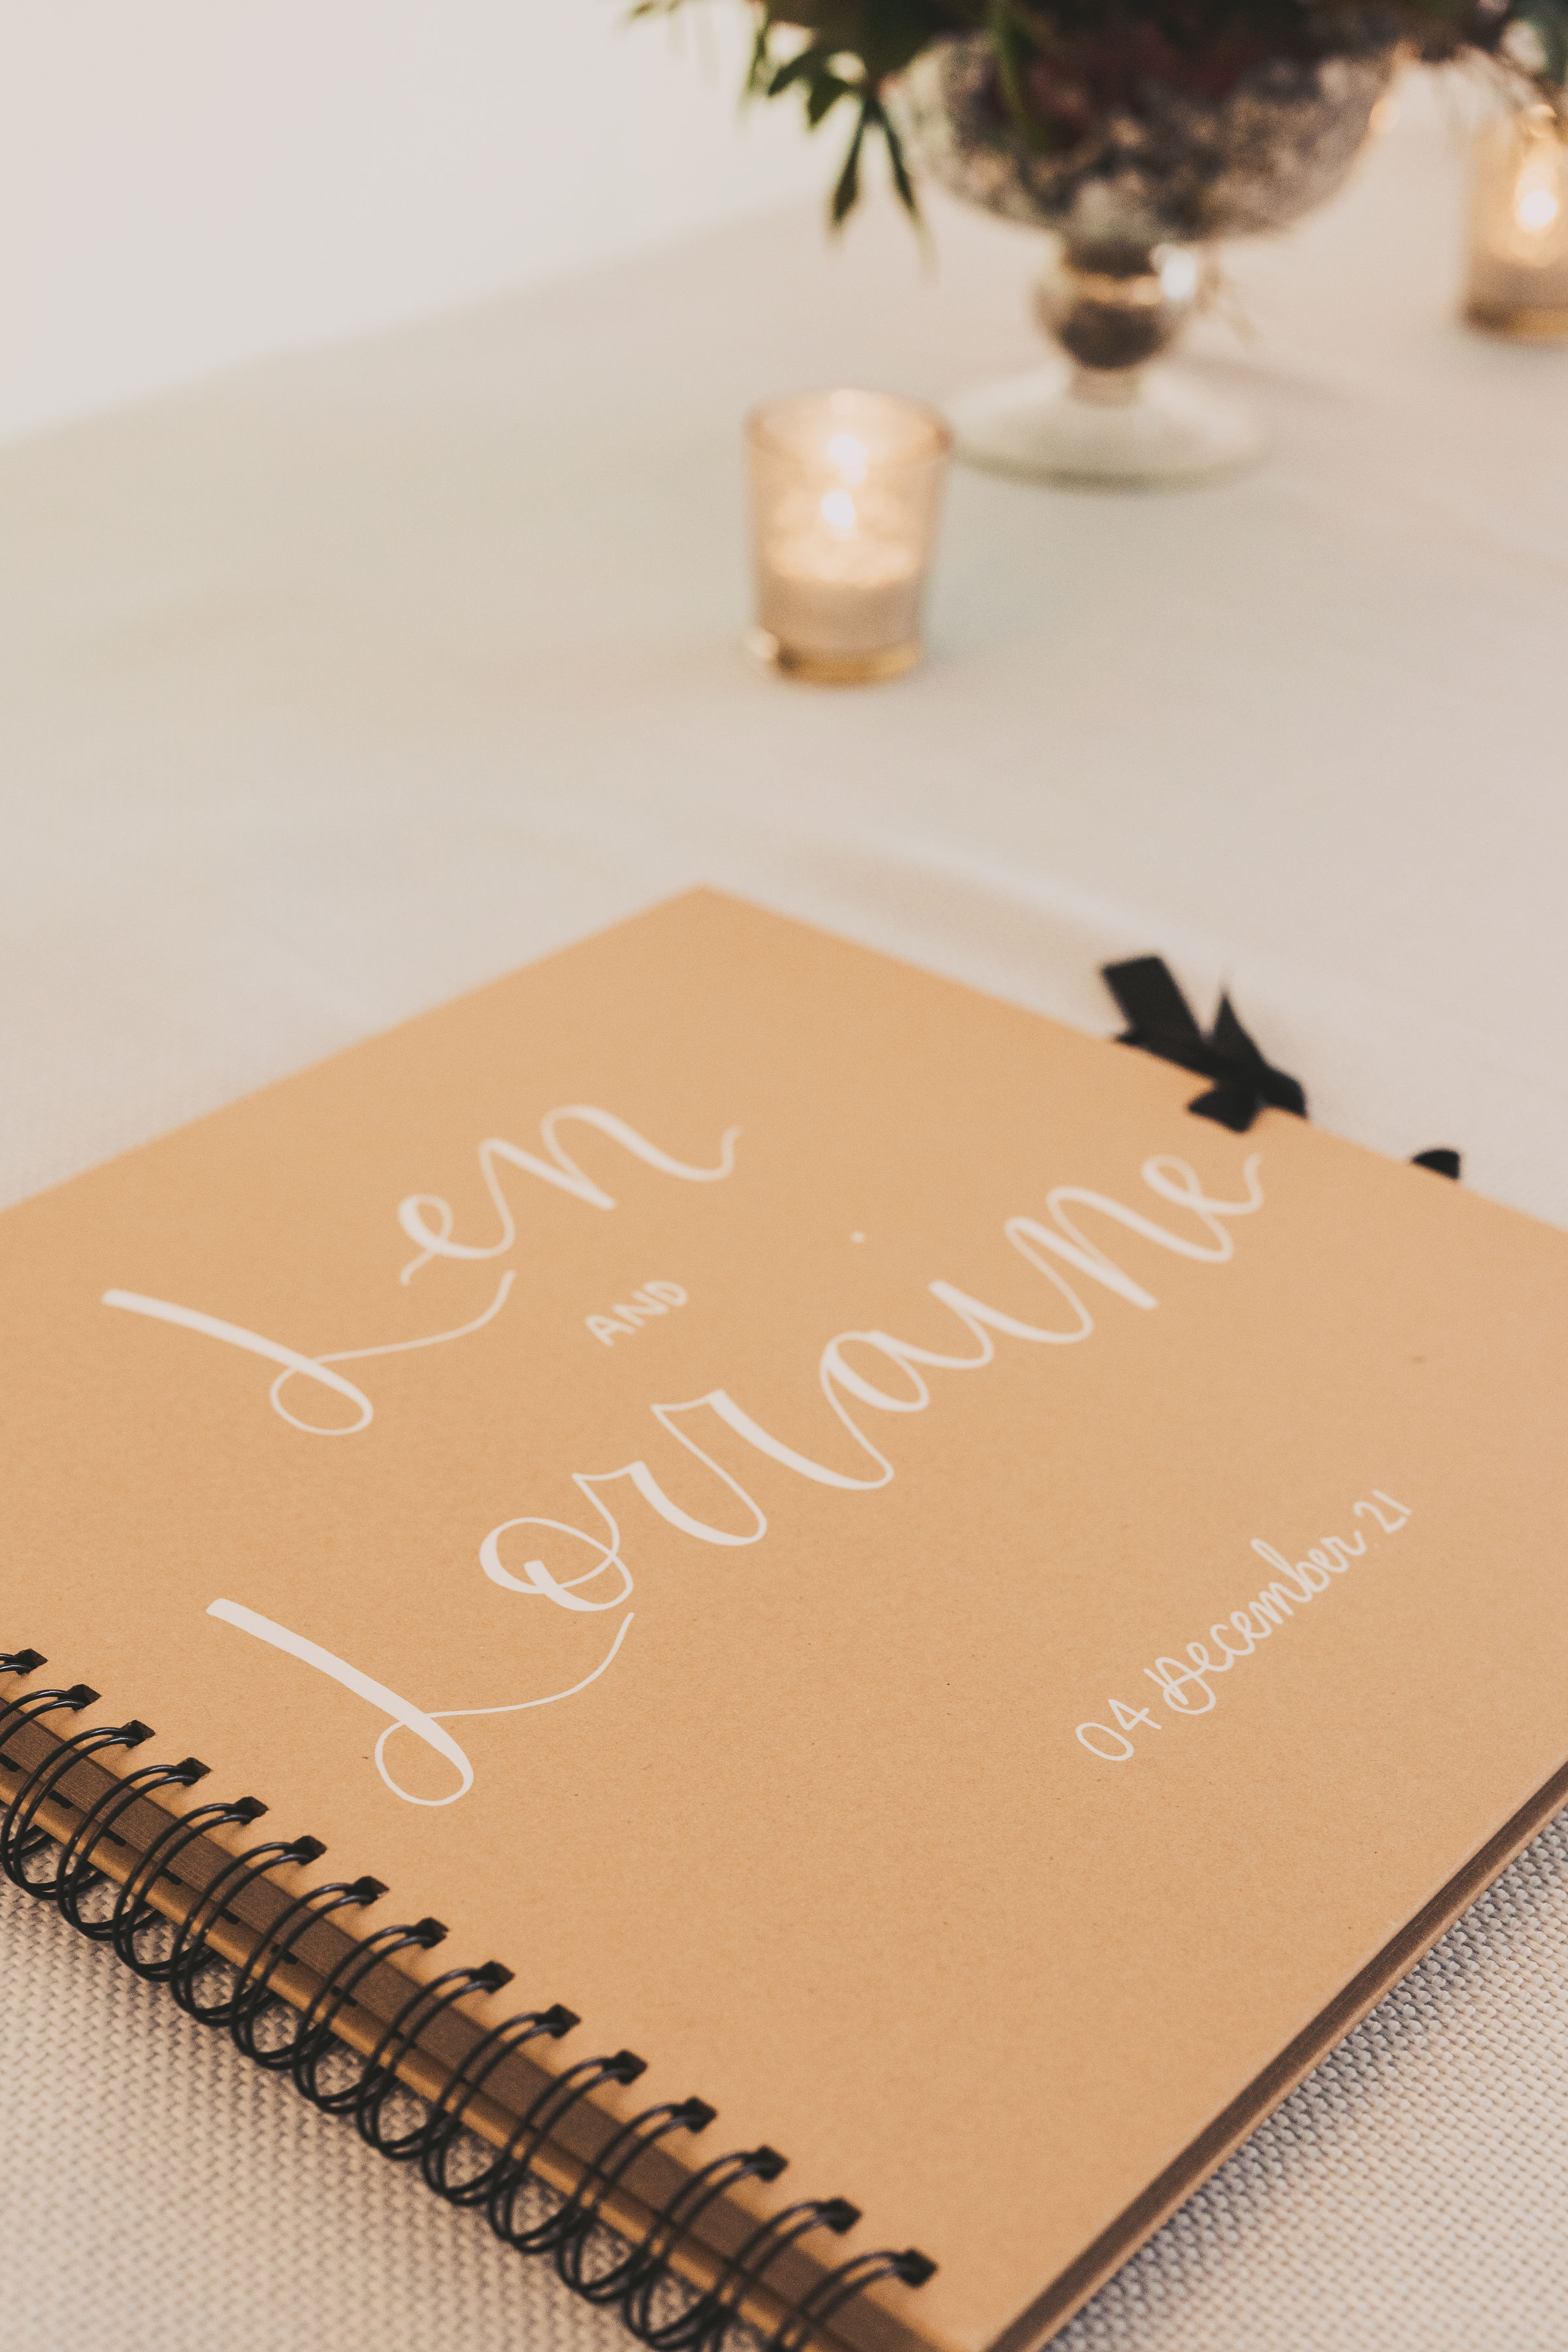 Len
AND
Lorraine
04 December 21